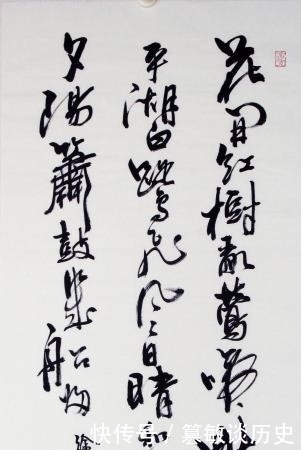 花開紅樹亂鶯啼
平湖白鷺飛風日晴和
夕陽簫鼓幾船歸
快传号/篡敏谈历史